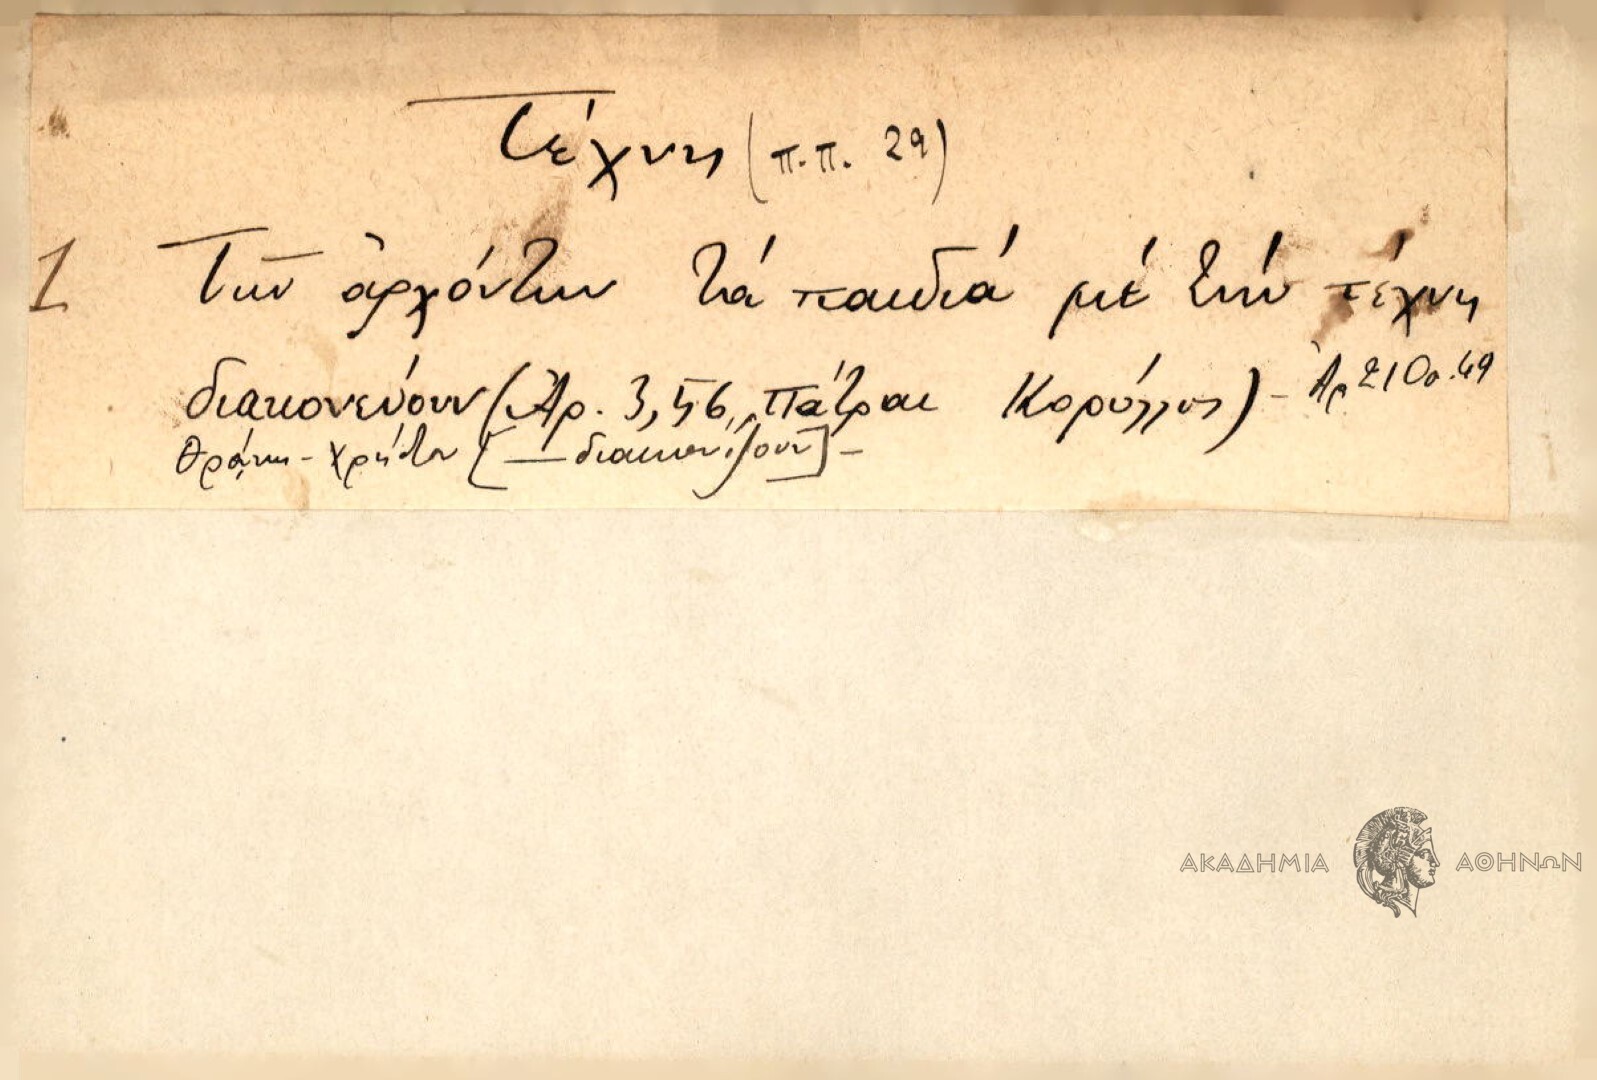 Τέχνη (π.π. 29)
1 Τῶν ἀρχόντων τά παιδιά μέ τήν τέχνη
διακονεύουν (Ἀρ. 3,56, Πάτραι Κορύλλος) - Ἀρ 210α.49
Θράκη - [— διακονίζουν] -
ΑΚΑΔΗΜΙΑ ΑΘΗΝΩΝ